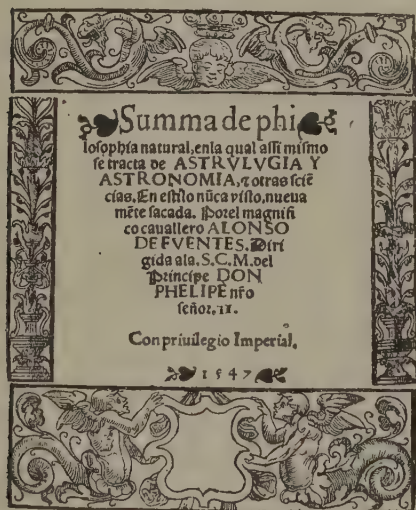 Summa de phi
losophia natural, enla qual assi mismo
se tracta de ASTRVLVGIA Y
ASTRONOMIA, ⁊ otras sciẽ
cias. En estilo nũca visto, nueua
mẽte sacada. Porel magnifi
co cauallero ALONSO
DE FVENTES. Diri
gida ala. S. C. M. del
Principe DON
PHELIPE nr̃o
señor. II.
Con priuilegio Imperial.
1547